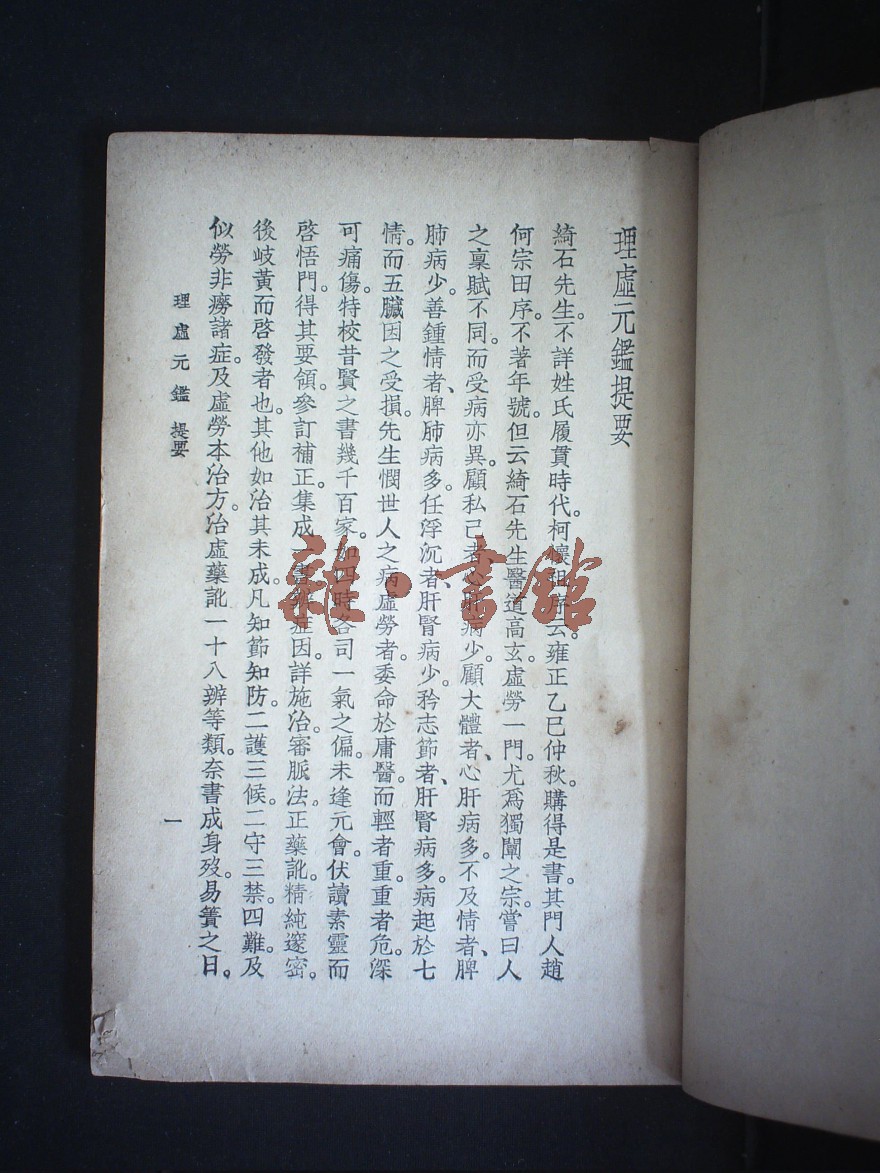 理虛元鑑提要
綺石先生。不詳姓氏履貫時代。柯懷祖序云。雍正乙巳仲秋。購得是書。其門人趙
何宗田序。不著年號。但云綺石先生醫道高玄。虛勞一門。尤爲獨闡之宗。嘗曰人
之稟賦不同。而受病亦異。顧私己者、心肝病少。顧大體者、心肝病多。不及情者、脾
肺病少。善鍾情者、脾肺病多。任浮沉者、肝腎病少。矜志節者、肝腎病多。病起於七
情。而五臟因之受損。先生憫世人之病虛勞者。委命於庸醫。而輕者重。重者危。深
可痛傷。特校昔賢之書幾千百家。如四時各司一氣之偏。未逢元會。伏讀素靈而
啓悟門。得其要領。參訂補正。集成 辨症因。詳施治。審脈法。正藥訛。精純邃密。
後岐黃而啓發者也。其他如治其未成。凡知節知防。二護三候。二守三禁。四難。及
似勞非癆諸症。及虛勞本治方。治虛藥訛一十八辨等類。奈書成身歿。易簀之日。
理虛元鑑 提要
一
雜·書館